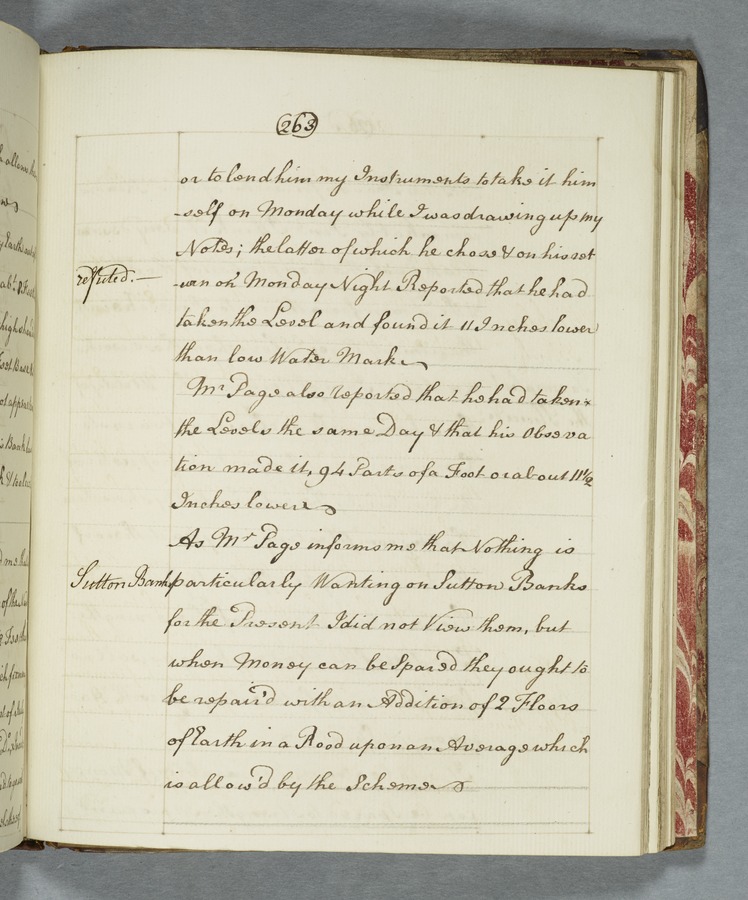 263
or to lend him my Instruments to take it him
-self on Monday while I was drawing up my
Notes; the latter of which he chose & on his ret
refuted.—
-urn on Monday Night Reported that he had
taken the Level and found it 11 Inches lower
than low Water Mark
Mr Page also reported that he had taken
the Levels the same Day & that his Observa
tion made it, 94 Parts of a Foot or about 11½
Inches lower
As Mr Page informs me that Nothing is
Sutton Banks
particularly Wanting on Sutton Banks
for the Present I did not View them, but
when Money can be Spared they ought to
be repair'd with an Addition of 2 Floors
of Earth in a Rood upon an Average which
is allow'd by the Scheme